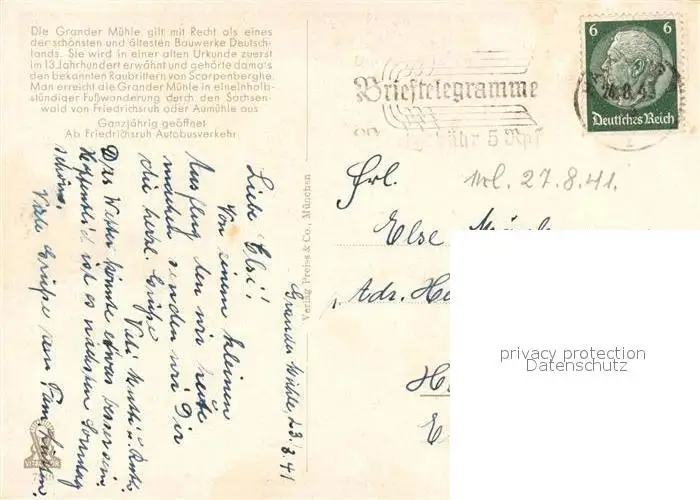 Die Grander Mühle, gilt mit Recht als eines
der schönsten und ältesten Bauwerke Deutsch-
lands. Sie wird in einer alten Urkunde zuerst
im 13. Jahrhundert erwähnt und gehörte dama's
den bekannten Raubrittern von Scarpenberghe.
Man erreicht die Grander Mühle in eineinhalb-
stündiger Fußwanderung durch den Sachsen-
wald von Friedrichsruh oder Aumühle aus
Ganzjährig geöffnet
Ab Friedrichsruh Autobusverkehr
Grander Mühle, 23.8.41
Liebe Elsi!
Von einem kleinen
Ausflug den wir heute
machen senden wir Dir
die herzl. Grüße
Das Wetter könnte etwas besser sein.
Hoffentlich ist es nächsten Sonntag
schöner.
Viele Grüße von Fam.
Verlag Preiss & Co., München
Brieftelegramme
gebühr 5 Rpf
6 6
Deutsches Reich
Frl.
27.8.41.
Else
Adr. He
H
E
privacy protection
Datenschutz